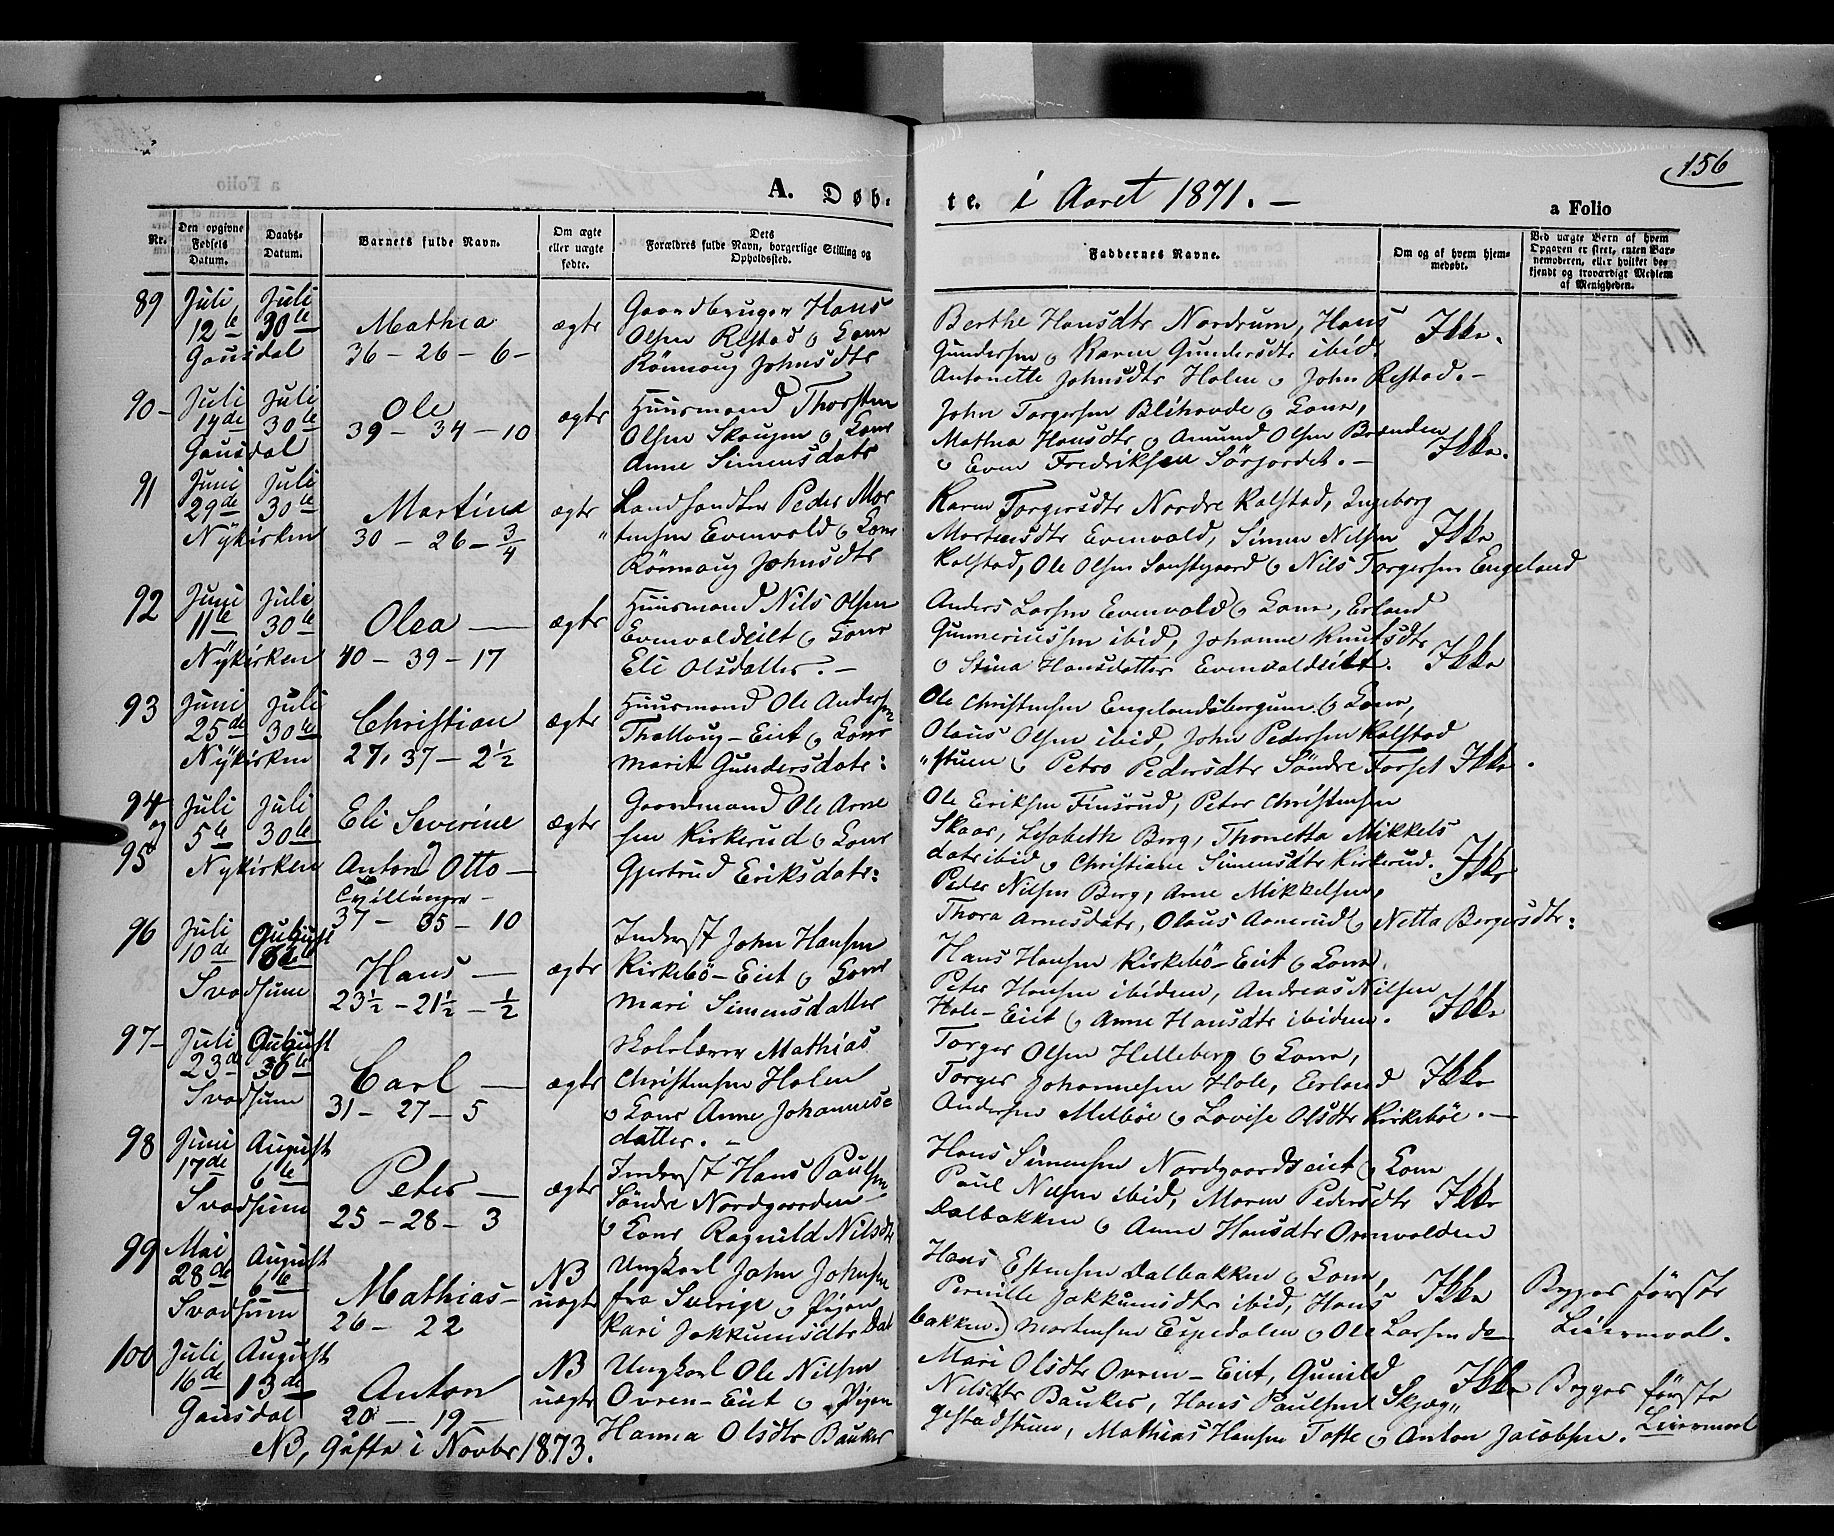 156
A. Døb-
te. i Aaret 1871. —
a Folio
Nr.
Den opgivne Fødsels Datum.
Daabs-Datum.
Barnets fulde Navn.
Om ægte eller uægte fødte.
Dets Forældres fulde Navn, borgerlige Stilling og Opholdssted.
Faddernes Navne.
Om og af hvem hjemmedøbt.
Ved uægte Børn af hvem Opgaven er skeet, enten Barnemoderen, eller hvilket bekjendt og troværdigt Medlem af Menigheden.
89 Juli 12te Gausdal
Juli 30te
Mathea
36 - 26 - 6 -
ægte
Gaardbruger Hans
Olsen Restad o Kone
Rönnaug Johnsdtr
Berthe Hansdtr Nordrum, Hans
Gundersen o Karen Gundersdtr ibid,
Antonette Johnsdtr Holen o John Restad. -
Ikke.
90 - Juli 14de Gausdal
Juli 30te
Ole
39 - 34 - 10
ægte
Huusmand Thorsten
Olsen Skougen o Kone
Anne Simensdatr
John Torgersen Blihovde o Kone,
Mathea Hansdtr o Amund Olsen Brænden
o Even Fredriksen Sörjordet. -
Ikke.
91 Juni 29de Nykirken
Juli 30te
Martine
30 - 26 - 3/4
ægte
Landhandler Peder Mor
tensen Evenvold o Kone
Rönnaug Johnsdtr
Karen Torgersdtr Nordre Kalstad, Ingeborg
Mortensdtr Evenvold, Simen Nilsen
Kalstad, Ole Olsen o Nils Torgersen Engeland
Ikke
92 Juni 11te Nykirken
Juli 30te
Olea —
40 - 39 - 17
ægte
Huusmand Nils Olsen
Evenvoldeiet o Kone
Eli Olsdatter. -
Anders Larsen Evenvold o Kone, Erland
Gunneriussen ibid, Johanne Knutsdtr
o Stina Hansdatter Evenvoldeiet.
Ikke
93 Juni 25de Nykirken
Juli 30te
Christian
27, 37 - 2½
ægte
Huusmand Ole Andersen
Thallaug-Eiet o Kone
Marit Gundersdatr:
Ole Christensen Engelandsbergum o Kone,
Olaus Olsen ibid, John Pedersen Kalstad
"stuen o Petra Pedersdtr Söndre Forset
Ikke.
94 og 95 Juli 5te Nykirken
Juli 30te
Eli Severine
og
Anton Otto —
Tvillinger -
37 - 35 - 10
ægte
Gaardmand Ole Arne
sen Kirkerud o Kone
Gjertrud Eriksdatr:
Ole Eriksen Finsrud, Peter Christensen
Skaar, Lisabeth Berg, Thonetta Mikkels
datr ibid o Christiane Simensdtr Kirkerud.
Peder Nilsen Berg, Arne Mikkelsen,
Thora Arnesdatr, Olaus Aanerud o Netta Borgersdtr:
Ikke
96 Juli 10de Svadsum
August
Hans —
23½ - 21½ - ½
ægte
Inderst John Hansen
Kirkebö-Eiet o Kone
Mari Simensdatter
Hans Hansen Kirkebö-Eiet o Kone,
Peter Hansen ibidem, Andreas Nilsen
Hole-Eiet o Anne Hansdtr ibidem.
Ikke
97 - Juli 23de Svadsum
August
Carl —
31 - 27 - 5
ægte
Skolelærer Mathias
Christensen Holen
o Kone Anne Johannes=
datter. -
Torger Olsen Helleberg o Kone,
Torger Johannesen Hole, Erland
Andersen Melböe o Lovise Olsdtr Kirkeböe. -
Ikke
98 Juni 17de Svadsum
August 6te
Peter —
25 - 28 - 3
ægte
Inderst Hans Paulsen
Söndre Nordgaarden -
o Kone Ragnild Nilsdtr
Hans Simensen Nordgaardseiet o Kone
Paul Nilsen ibid, Maren Pedersdtr
Dalbakken o Anne Hansdtr
Ikke
99 Mai 28de Svadsum
August 6te
Mathias -
26 - 22
NB
uægte
Ungkarl John Johnsen
fra Sverige o Pigen
Kari Jokkumsdtr Dal
bakken)
Hans Estensen Dalbakken o Kone,
Pernille Jokkumsdtr ibid, Hans
Mortensen Espedalen o Ole Larsen do
Ikke
Begges första
Leiermaal.
100 Juli 16de Gausdal
August 13de
Anton
20 - 19 -
NB
uægte
Ungkarl Ole Nilsen
Ovren-Eiet o Pigen
Hanna Olsdtr Bauker
Mari Olsdtr Ovren-Eiet, Gunild
Nilsdtr Bauker, Hans Paulsen Skjæg"
gestadstuen, Mathias Hansen Tofte o Anton Jacobsen.
Ikke
Begges første
Leiermaal
NB, Gifte i Novbr 1873.